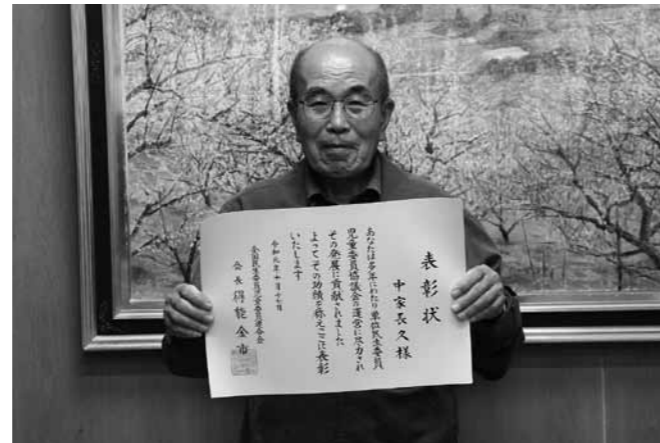 表彰状
中家長久様
あなたは多年にわたり単位民生委員
児童委員協議会の運営に尽力され
その発展に貢献されました
よってその功績を称えここに表彰
いたします
令和元年十月十七日
全国民生委員児童委員連合会
会長 得能金市